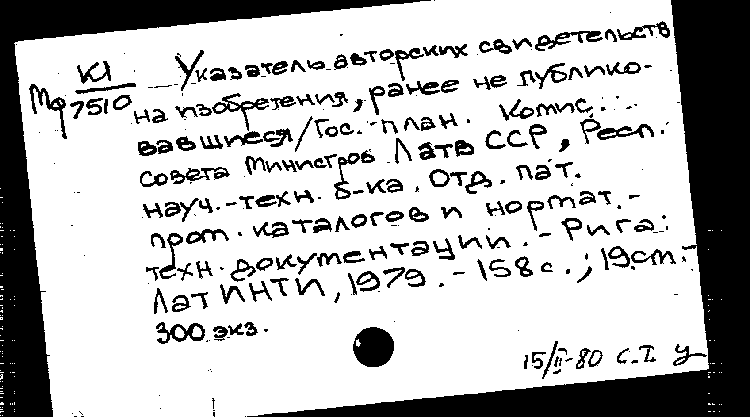 К1 Указатель авторских свидетельств
Мф 7510 на изобретения, ранее не публико-
вавшиеся/Гос. план. Комис.
Совета Министров Латв ССР, Респ.
науч.-техн. б-ка. Отд. пат.
пром. каталогов и нормат.-
техн. документации. - Рига:
ЛатИНТИ, 1979. - 158 с.; 19см.-
300 экз.
15/II-80 С.Т.